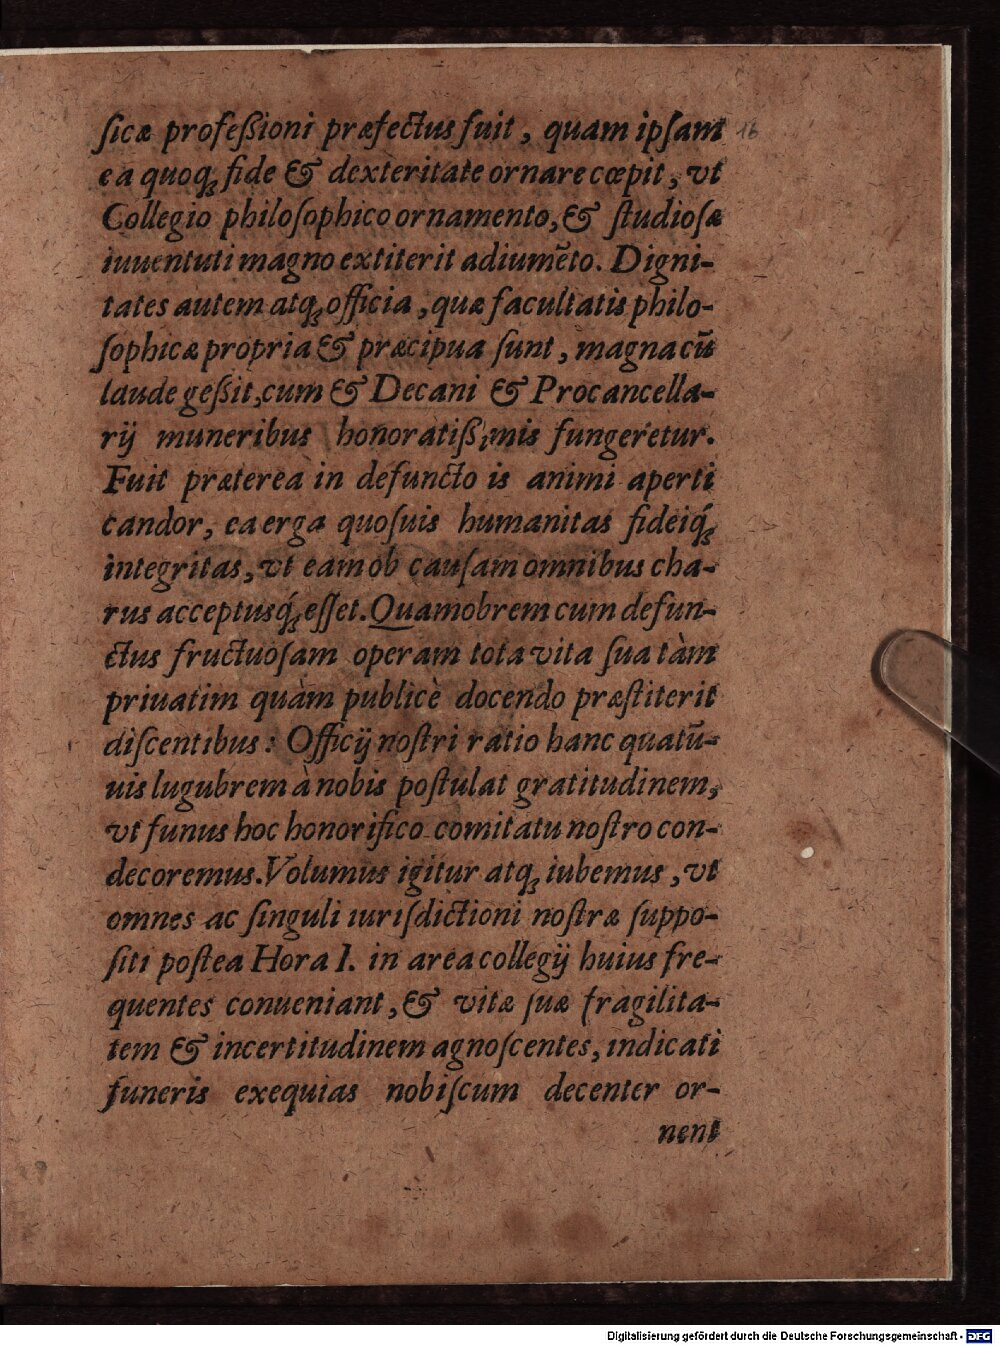 ſicæ profeßioni præfectus fuit, quam ipſam
ea quoq; fide & dexteritate ornare cœpit, vt
Collegio philoſophico ornamento, & ſtudioſæ
iuuentuti magno extiterit adiumẽto. Digni-
tates autem atq; officia, quæ facultatis philo-
ſophicæ propria & præcipua ſunt, magna cũ
laude geßit, cum & Decani & Procancella-
rij muneribus honoratißimis fungeretur.
Fuit præterea in defuncto is animi aperti
candor, ea erga quoſuis humanitas fideiq́;
integritas, vt eam ob cauſam omnibus cha-
rus acceptusq́; eſſet. Quamobrem cum defun-
ctus fructuoſam operam tota vita ſua tàm
priuatim quàm publicè docendo præſtiterit
diſcentibus: Officij noſtri ratio hanc quatũ-
uis lugubrem à nobis poſtulat gratitudinem,
vt funus hoc honorifico comitatu noſtro con-
decoremus. Volumus igitur atq; iubemus, vt
omnes ac ſinguli iuriſdictioni noſtræ ſuppo-
ſiti poſtea Hora I. in area collegij huius fre-
quentes conueniant, & vitæ ſuæ fragilita-
tem & incertitudinem agnoſcentes, indicati
funeris exequias nobiſcum decenter or-
nent
16
Digitalisierung gefördert durch die Deutsche Forschungsgemeinschaft - DFG